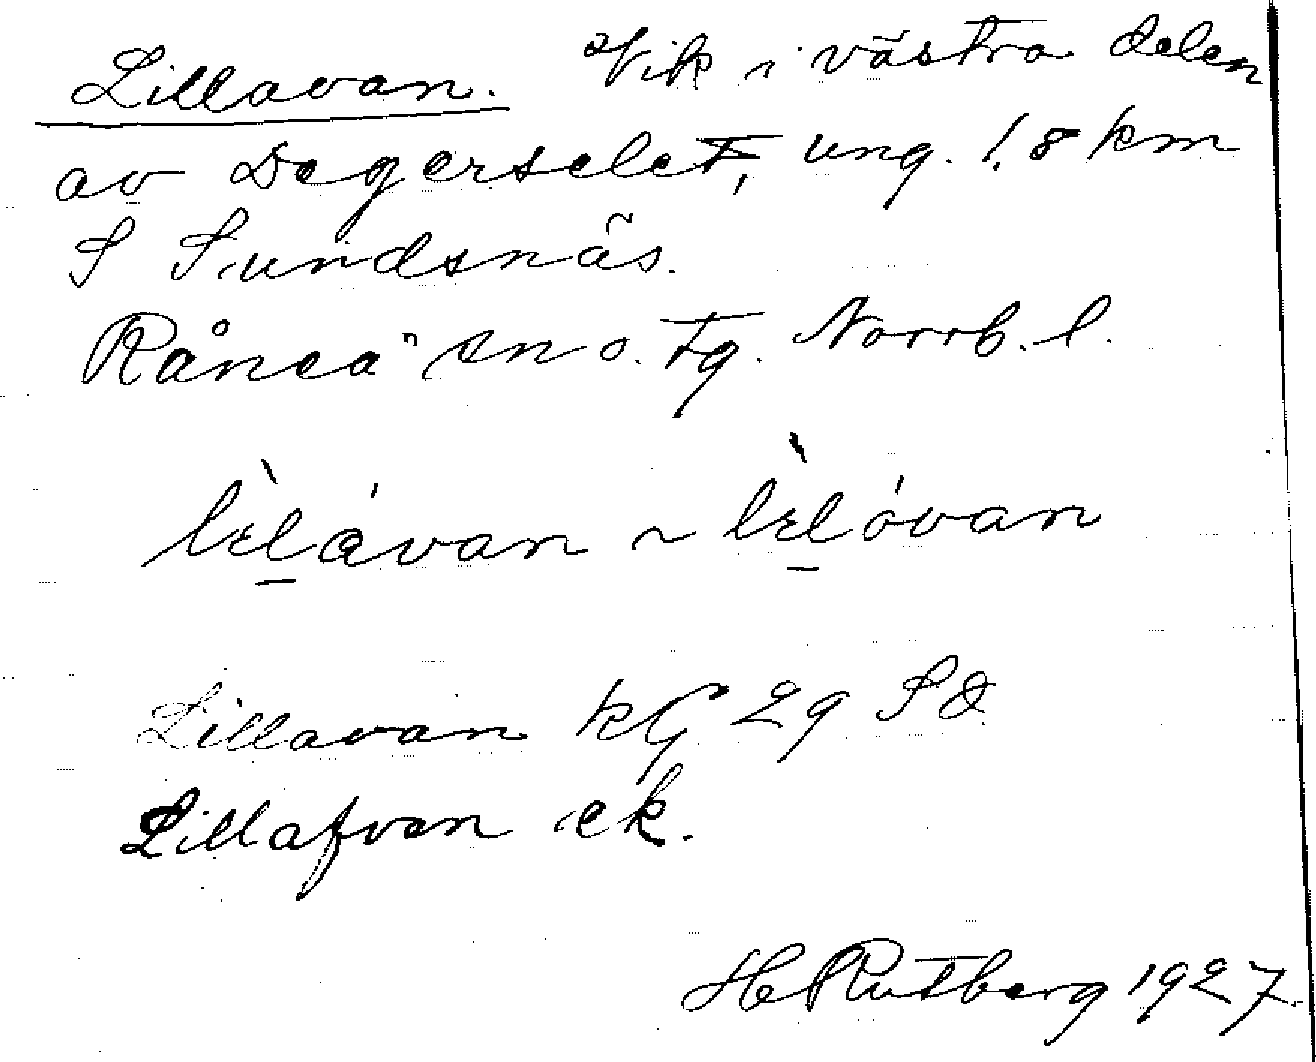 Lillavan. Vik i västra delen
av Degerselet, ung. 1,8 km
S Sundsnäs.
Råneå sn o. tg. Norrb. l.
lìlávan ~ lìlóvan
Lillavan kG 29 SO
Lillafvan ek.
H Rutberg 1927.